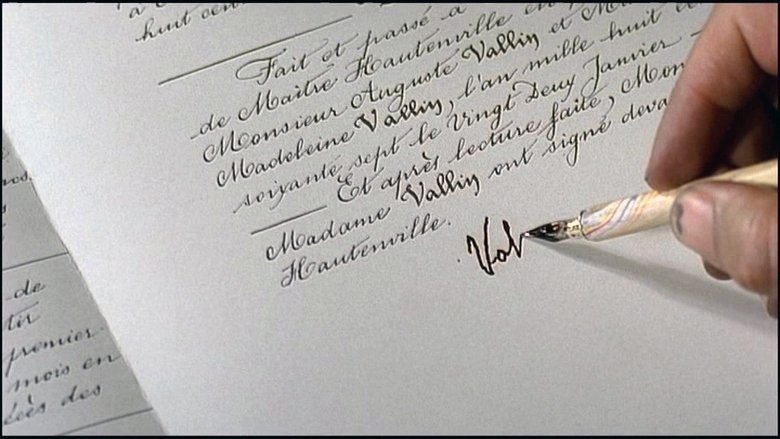 huit cen
Fait et passé à
de Maître Hautenville en
Monsieur Auguste Vallin et Ma
Madeleine Vallin, l'an mille huit ce
soixante sept le Vingt Deux Janvier
Et après lecture faite, Mon
Madame Vallin ont signé deva
Hautenville.
Val
de
tir
premier
mois en
des